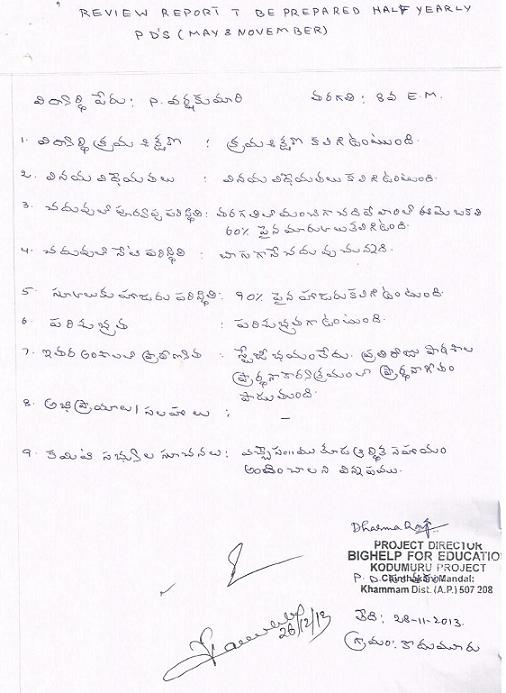 REVIEW REPORT T BE PREPARED HALF YEARLY
P D'S (MAY & NOVEMBER)
విద్యార్థి పేరు: P. వర్షకుమారి తరగతి: 8వ E.M.
1. విద్యార్థి క్రమశిక్షణ : క్రమశిక్షణ కలిగి ఉంటుంది.
2. వినయ విధేయతలు : వినయ విధేయతలు కలిగి ఉంటుంది.
3. చదువులో పూర్వపు పరిస్థితి: తరగతిలో మంచిగా చదివే వారిలో ఈమె ఒకరి
60% పైన మార్కులు కలిగి ఉంది.
4. చదువులో నేటి పరిస్థితి : బాగుగానే చదువుచున్నది.
5. స్కూలుకు హాజరు పరిస్థితి: 90% పైన హాజరు కలిగి ఉంటుంది.
6. పరిశుభ్రత : పరిశుభ్రంగా ఉంటుంది.
7. ఇతర అంశాలలో ప్రావీణ్యత : స్టేజి భయం లేదు. ప్రతిరోజు పాఠశాల
ప్రార్థనా కార్యక్రమంలో ప్రార్థనా గీతం
పాడుతుంది.
8. అభిప్రాయాలు/సలహాలు : –
9. కమిటి సభ్యుల సూచనలు: వచ్చే సం॥ము కూడ ఆర్థిక సహాయం
అందించాలని విన్నపము.
Dharma Raj
PROJECT DIRECTOR
BIGHELP FOR EDUCATIO
KODUMURU PROJECT
Chinthakani Mandal:
Khammam Dist. (A.P.) 507 208
26/12/13
తేది: 28-11-2013.
గ్రామం: కొదుమూరు